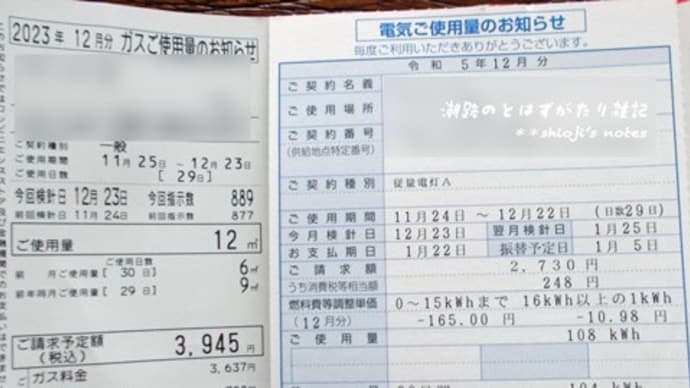 2023年 12月分 ガスご使用量のお知らせ
ご契約種別 一般
ご使用期間 11月25日 ~ 12月23日
[ 29日]
今回検針日 12月23日 今回指示数 889
前回検針日 11月24日 前回指示数 877
ご使用量 12㎥
ご使用日数
前 月ご使用量[ 30日] 6㎥
前年同月ご使用量[ 29日] 9㎥
ご請求予定額 3,945円
(税込)
ガス料金 3,637円
電気ご使用量のお知らせ
毎度ご利用いただきありがとうございます。
令和 5年12月分
ご契約名義
ご使用場所
ご契約番号
(供給地点特定番号)
潮路のとはずがたり雑記
**shioji's notes
ご契約種別 従量電灯A
ご使用期間 11月24日 ~ 12月22日 (日数29日)
今月検針日 12月23日 翌月検針日 1月25日
お支払期日 1月22日 振替予定日 1月 5日
ご請求額 2,730円
うち消費税等相当額 248円
燃料費等調整単価 0~15kWhまで 16kWh以上の1kWh
(12月分) -165.00円 -10.98円
ご使用量 108 kWh
104 kWh